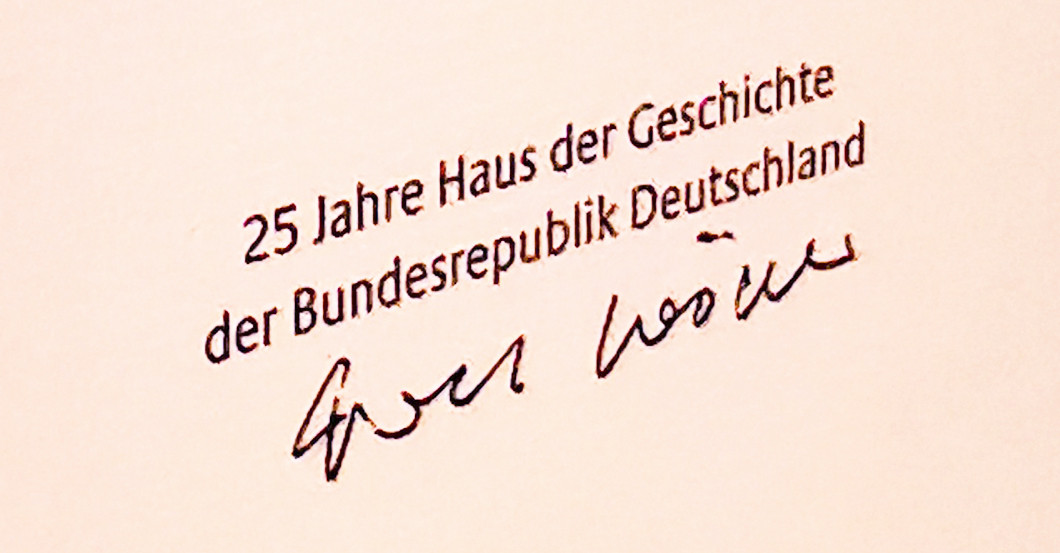 25 Jahre Haus der Geschichte
der Bundesrepublik Deutschland